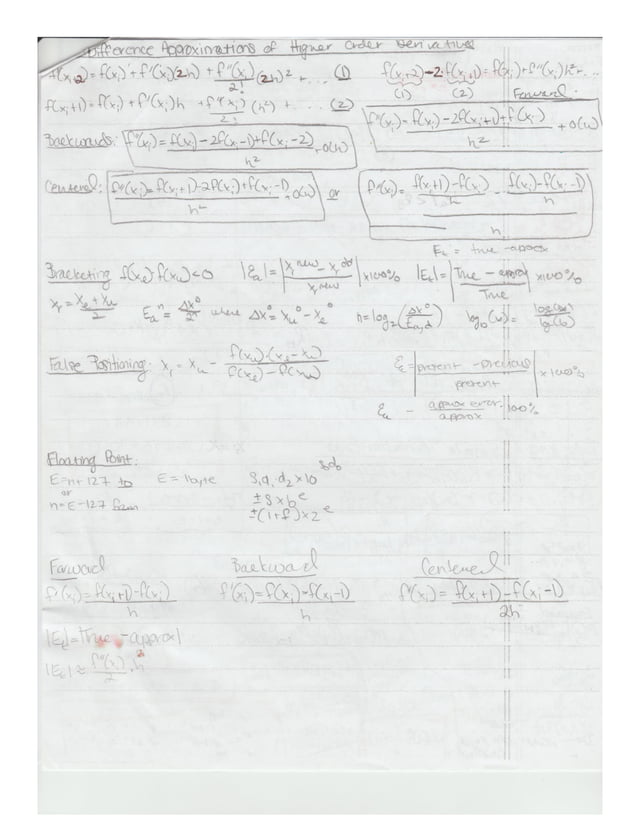 Difference Approximations of Higher Order Derivatives
f(xi+2) = f(xi) + f'(xi)(2h) + f''(xi)/2! (2h)² + ... (1)
f(xi+2) - 2·f(xi+1) = f(xi) + f''(xi)h² ...
(1) (2)
f(xi+1) = f(xi) + f'(xi)h + f''(xi)/2! (h²) + ... (2)
Forward:
f''(xi) = f(xi) - 2f(xi+1) + f(xi) / h² + O(h)
Backwards: f''(xi) = f(xi) - 2f(xi-1) + f(xi-2) / h² + O(h)
Centered: f''(xi) = f(xi+1) - 2f(xi) + f(xi-1) / h² + O(h) or f''(xi) = f(xi+1) - f(xi) / h - f(xi) - f(xi-1) / h / h
Et = true - approx
Bracketing f(xl)·f(xu) < 0 |Ea| = |xr new - xr old / xr new| × 100% |Et| = |True - approx / True| × 100%
xr = xl + xu / 2 Ea^n = Δx⁰ / 2^n where Δx⁰ = xu⁰ - xl⁰ n = log2(Δx⁰ / Ea,d) logb(x) = log(x) / log(b)
False Positioning: xr = xu - f(xu)·(xl - xu) / f(xl) - f(xu)
Ea = |present - previous / present| × 100%
Ea = approx error / approx · 100%
Floating Point:
E = n + 127 to E = 1 byte
or
n = E - 127 from
± S × b^e
± (1+f) × 2^e
Forward Backward Centered
f'(xi) = f(xi+1) - f(xi) / h f'(xi) = f(xi) - f(xi-1) / h f'(xi) = f(xi+1) - f(xi-1) / 2h
|Et| = |True - approx|
|Et| ≈ f''(x) / 2 · h